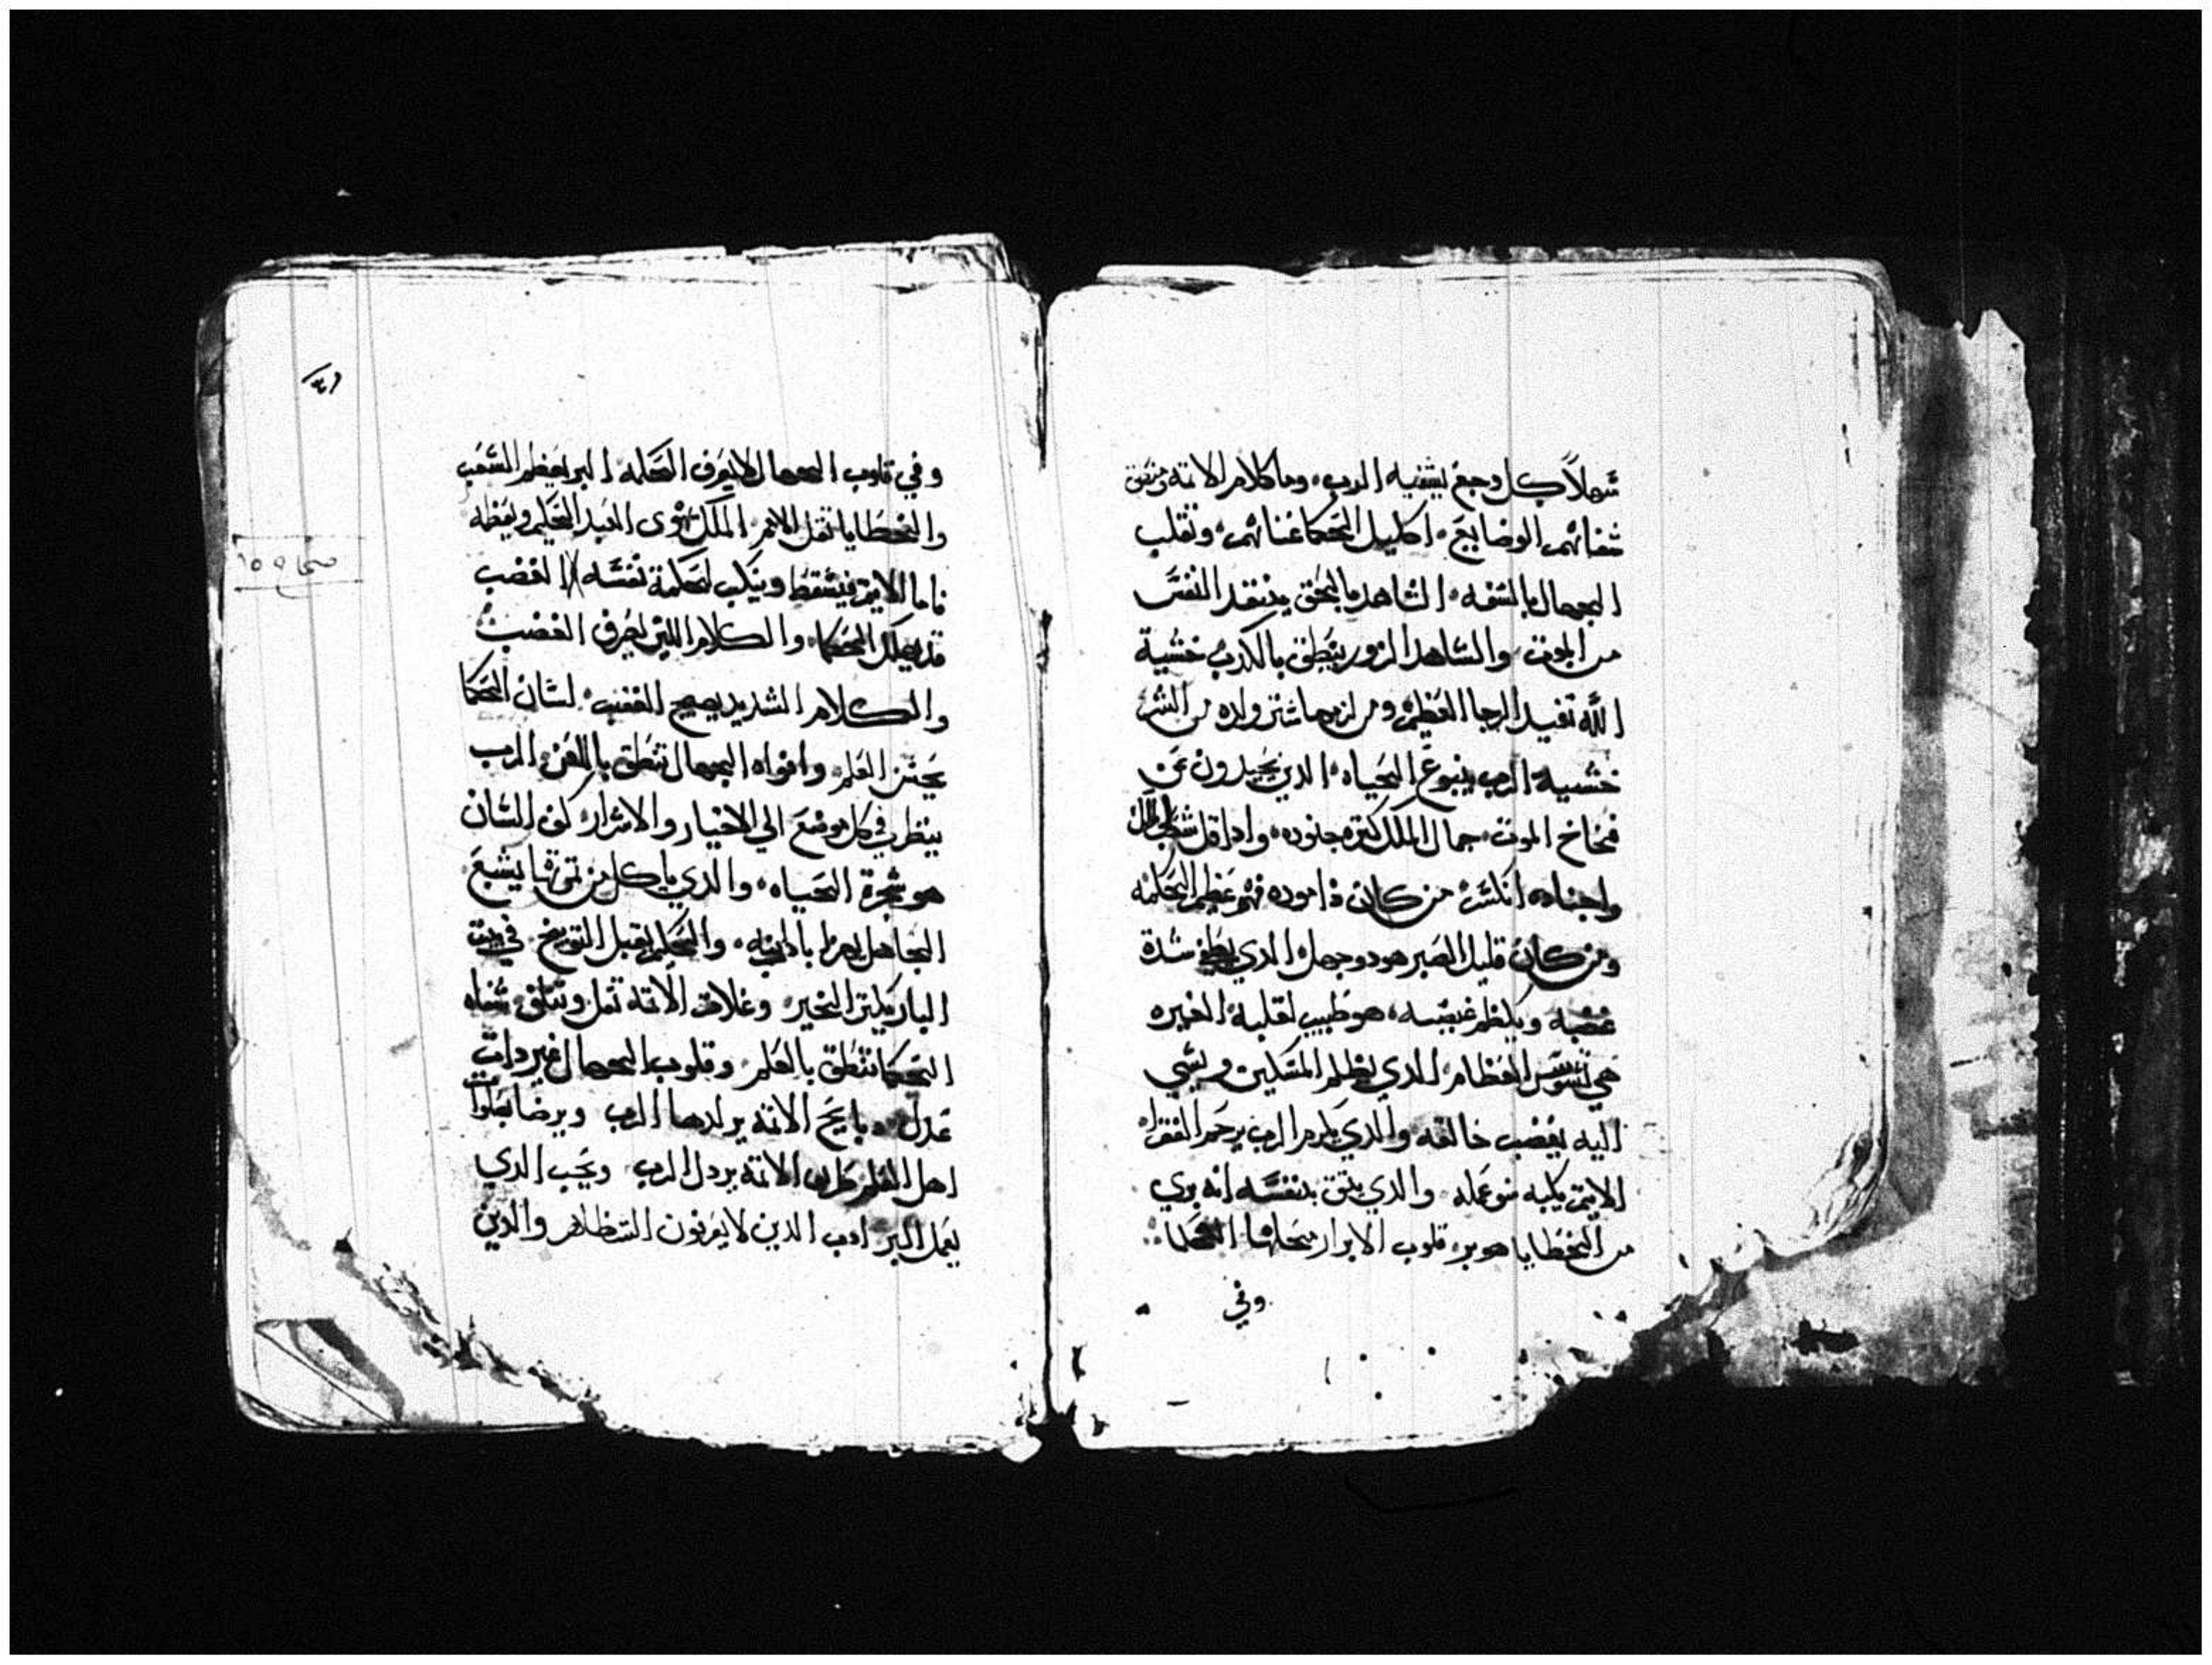 سهلاً كل وجع يشفيه الرب وما كلام الاتمه
شفاتهم الوضايع اكليل الحكما غناهم وتقلب
الجهال بالسفه الشاهد بالحق ينقد النفس
من الموت والشاهد الزور ينطق بالكدب خشية
الله تفيد الرجا العظيم ولده من الشر
خشية الرب ينبوع الحياه الدين يحيدون عن
فخاخ الموت جمال الملك كثرة جنوده وادا قل
واجناده انكسر من كان فهو عظيم الحكمه
ومن كان قليل الصبر هو دو جهل الدي يطفي شدة
غضبه ويكظم غيضه هو طبيب لقلبه الغيره
هي تسوس العظام الدي يظلم المسكين ويسي
اليه يغضب خالقه والدي يكرم الرب يرحم الفقراء
الاتيم يكبه سو عمله والدي يتق بنفسه انه بري
من الخطايا هو بر قلوب الابرار الحكما
وفي
وفي قلوب الجهال لا يعرف الحكمه البر يعظم الشعب
والخطايا تقل الامم الملك يهوى العبد الحكيم وبعظمه
فاما الاتيم فيسقط وينكب لحكمة نفسه الغضب
قد يهلك الحكما والكلام اللين يصرف الغضب
والكلام الشديد يهيج الغضب لسان الحكما
يحسن العلم وافواه الجهال تنطق باللعن الرب
ينظر في كل موضع الي الاخيار والاشرار كف اللسان
هو شجرة الحياه والدي ياكل من ثمرتها يشبع
الجاهل يهزا بادب ابيه والحكيم يقبل التوبيخ في بيت
البار يكثر الخير وغلات الاتمه تقل وتتلف شفاه
الحكما تنطق بالعلم وقلوب الجهال غير دات
عدل دبايح الاتمه يردلها الرب ويرضا بصلوات
اهل العلم طرق الاتمه يردل الرب ويحب الدي
يعمل البر ادب الدين لا يعرفون الستظلاهر والدين
صحاح ١٥